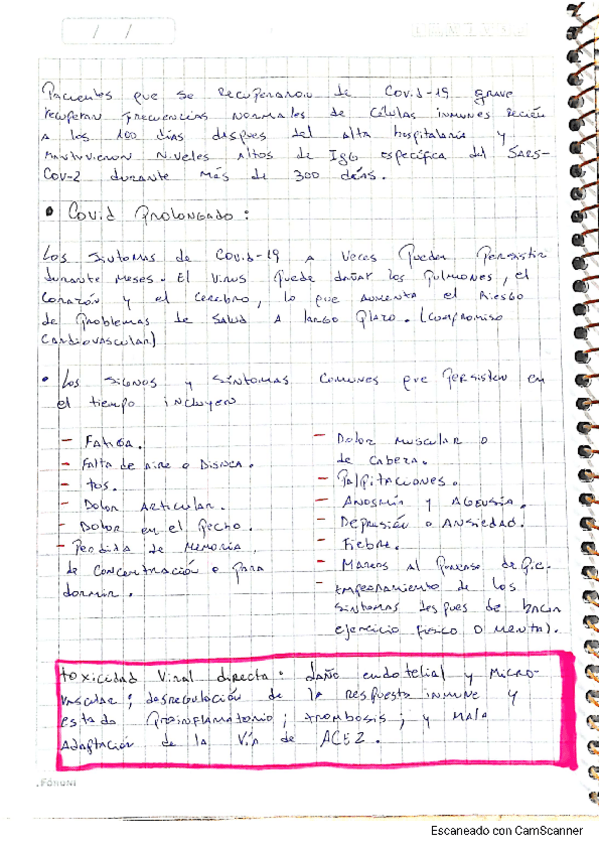 / /
Pacientes que se recuperaron de Covid-19 grave
recuperan frecuencias normales de células inmunes recién
a los 100 días despues del alta hospitalaria y
mantuvieron Niveles altos de IgG específica del SARS-
Cov-2 durante más de 300 días.
• Covid Prolongado:
Los Síntomas de Covid-19 a veces pueden persistir
durante meses. El virus puede dañar los pulmones, el
corazón y el cerebro, lo que aumenta el riesgo
de problemas de salud a largo plazo. (compromiso
cardiovascular)
• Los signos y síntomas comunes que persisten en
el tiempo incluyen
- Fatiga.
- Falta de aire o Disnea.
- tos.
- Dolor Articular.
- Dolor en el pecho.
- Perdida de memoria,
de concentración o para
dormir.
- Dolor muscular o
de cabeza.
- Palpitaciones.
- Anosmia y Ageusia.
- Depresión o Ansiedad.
- Fiebre.
- Mareos al ponerse de pie.
- Empeoramiento de los
síntomas despues de hacer
ejercicio físico o mental.
toxicidad viral directa: daño endotelial y micro-
vascular; desregulación de la respuesta inmune y
estado proinflamatorio; trombosis; y mala
adaptación de la vía de ACE2.
Escaneado con CamScanner